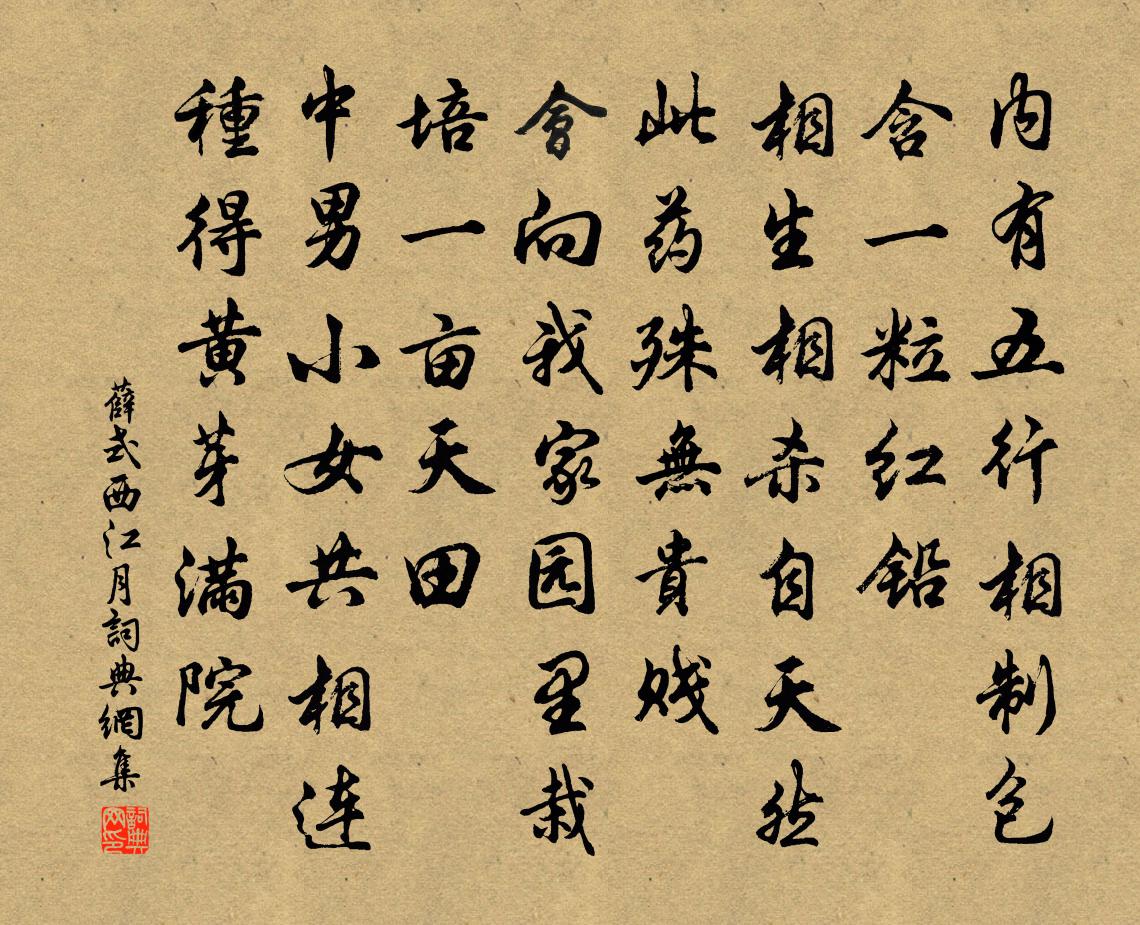 内有五行相制包
含一粒红鉛
相生相杀自天然
此药殊無貴賎
會向我家园里栽
培一亩天田
中男小女共相连
種得黄芽满院
薛式西江月詞典網集
詞典网印